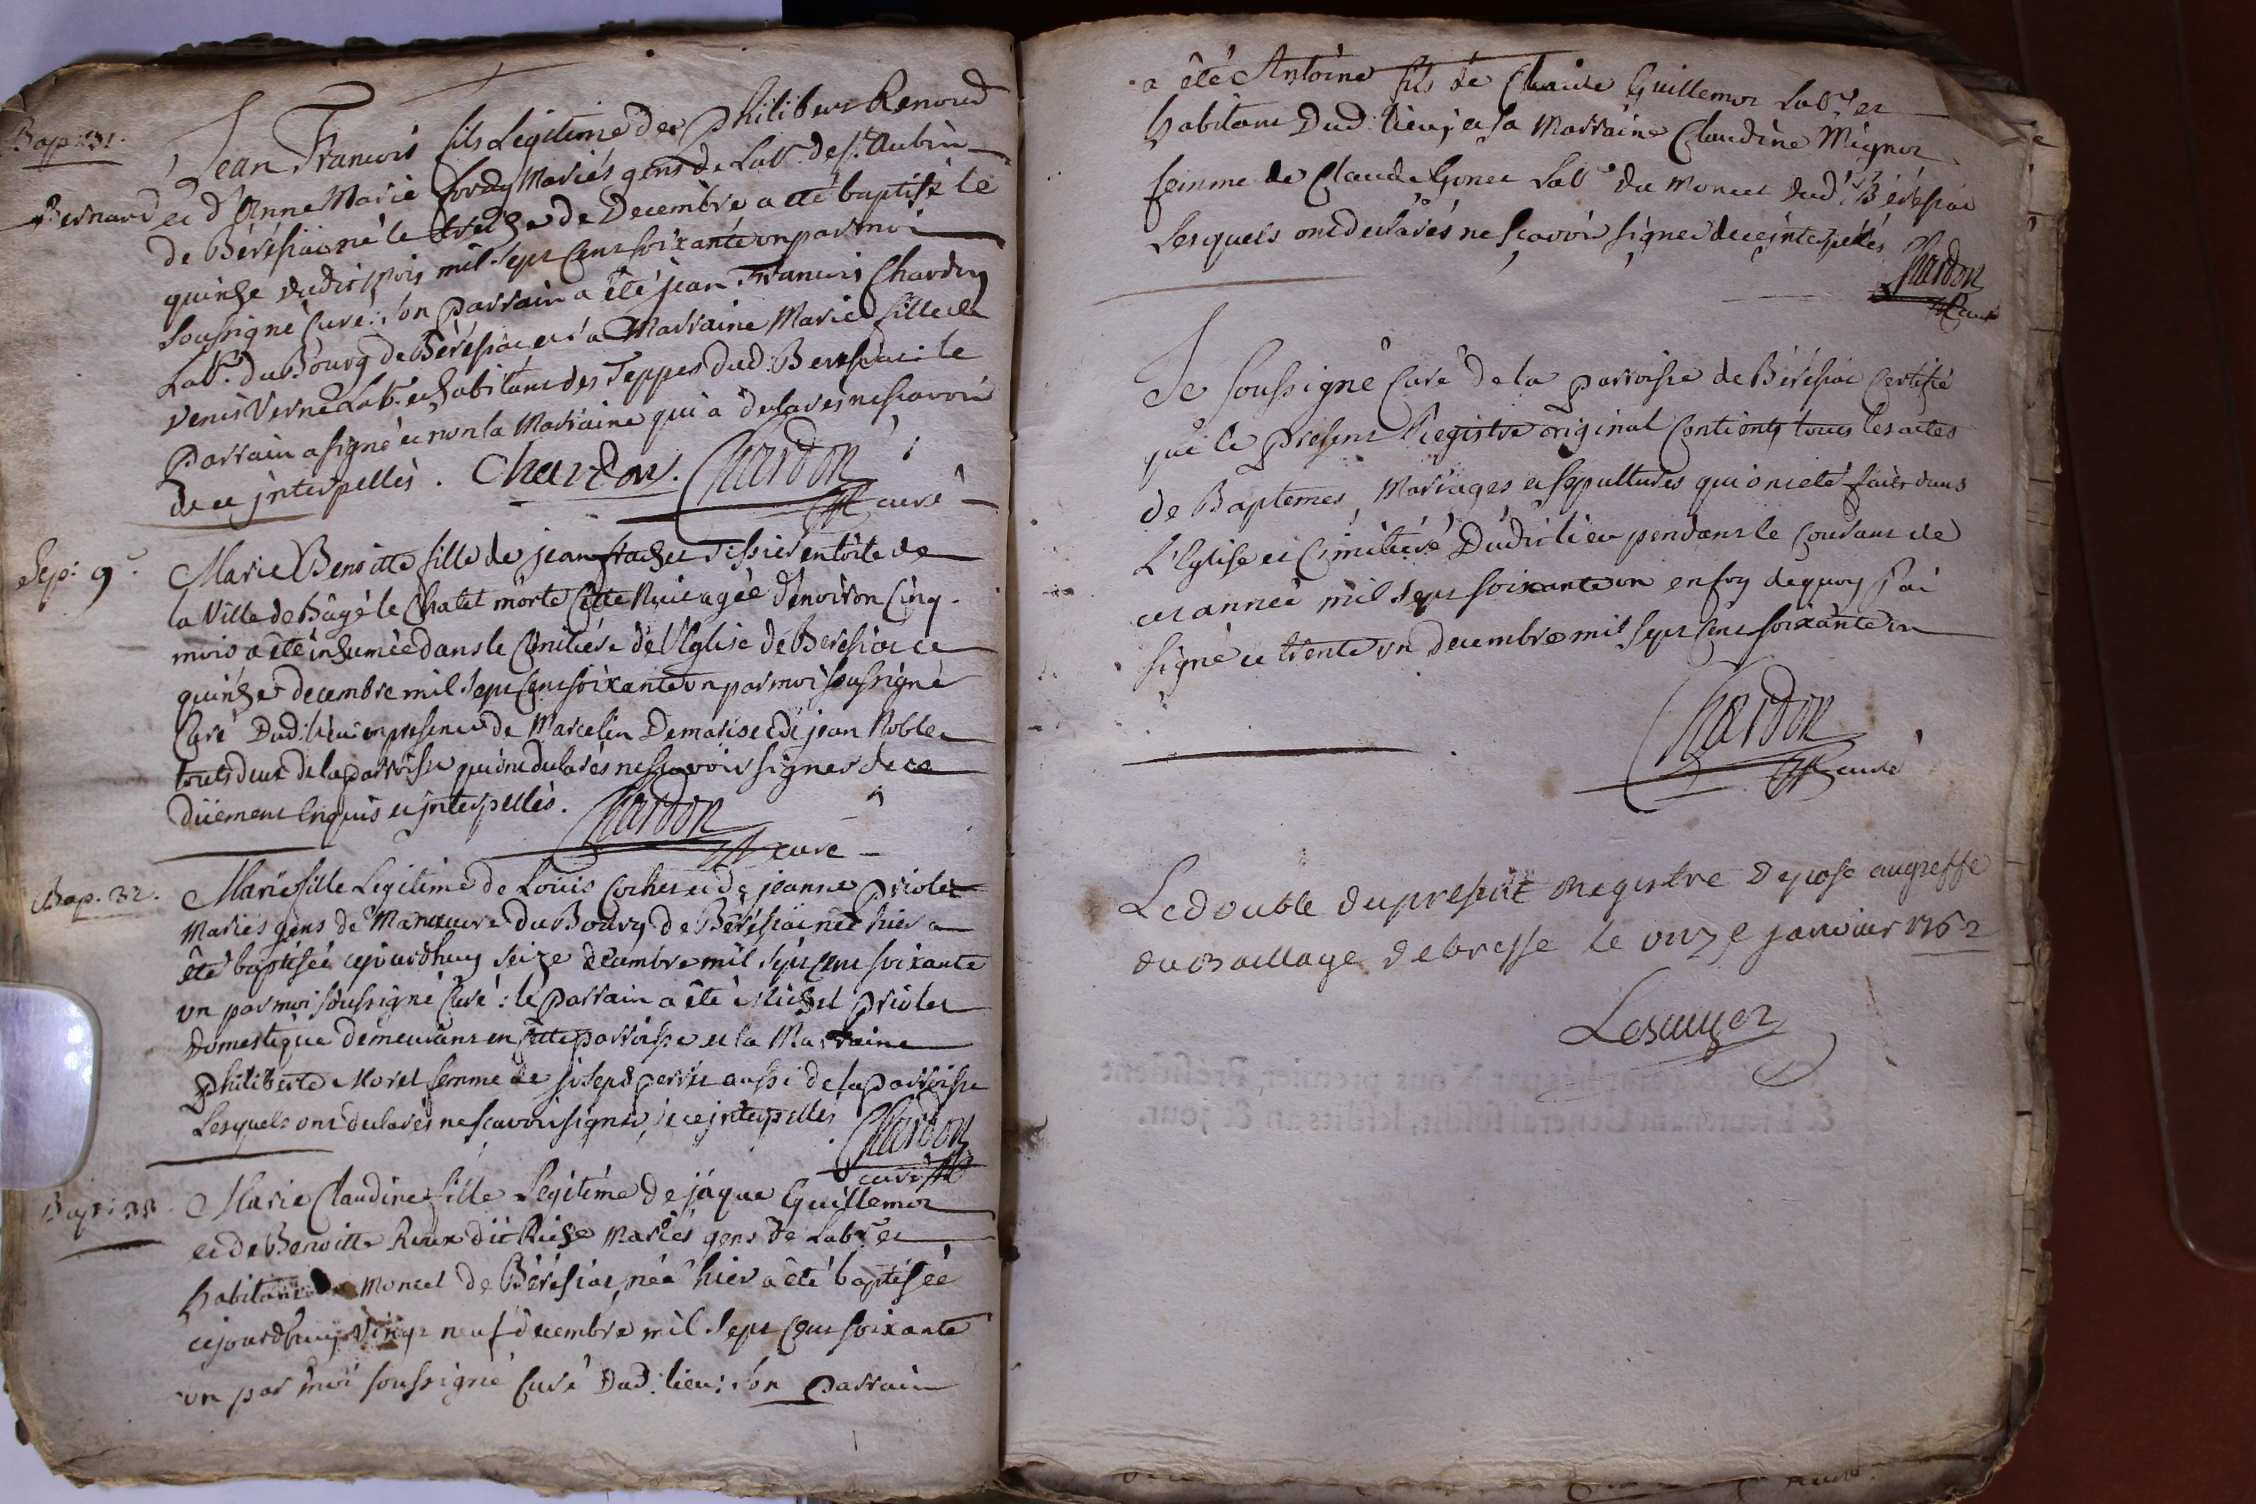 Bap: 31.
Jean Francois fils Legitime des Philibert Renoud
Bernard et d'Anne Marie mariés gens de Lab.r de St. Aubin
de Béréfiac né le treize de Decembre a été baptisé le
quinze dudit mois mil sept Cent soixante un par moi
soussigné Curé: son parrain a été jean Francois Chardon
Lab.r du Bourg de Béréfiac et sa Marraine Marie fille de
Denis Verne Lab.r et habitant des Teppes dud: Berefiac: le
Parrain a signé et non la Marraine qui a declarés ne scavoir
de ce jnterpellés. Chardon. Chardon
curé
Sep: 9.e
Marie Benoitte fille de jean frachet tissier en toile de
la Ville de Bâgé le Chatel morte Cette Nuit agée d'environ Cinq
mois a été inhumée dans le Cimitiére de l'Eglise de Berefiac ce
quinze decembre mil sept Cent soixante un par moi soussigné
Curé Dud: lieu: en presence de Marcelin Demarise et de jean Noblet
touts deux de la parroisse qui ont declarés ne scavoir signer de ce
düement Enquis et jnterpellés. Chardon
curé
Bap. 32.
Marie fille Legitime de Loüis Cochet et de jeanne Priolet
Mariés gens de Manœuvre du Bourg de Béréfiac née hier a
été baptisée cejourdhuy seize decembre mil sept Cent soixante
un par moi soussigné Curé: le parrain a été Michel Priolet
domestique demeurant en Cette parroisse et la Marraine
Philiberte Morel femme de joseph perret aussi de la parroisse
Lesquels ont declarés ne scavoir signer de ce jnterpellés
Chardon
curé
Bap: 33.
Marie Claudine fille Legitime de jaque Guillemot
et de Benoitte Roux dit Riche Mariés gens de Lab.r et
habitant Moncet de Béréfiac, née hier a été baptisée
cejourdhuy vingt neuf decembre mil sept Cent soixante
un par moi soussigné Curé Dud: lieu: son parrain
a été Antoine fils de Claude Guillemot Lab.r et
habitant Dud: lieu; et sa Marraine Claudine Mignot
femme de Claude Gonet Lab.r du Moncet dud: Béréfiac
Lesquels ont declarés ne scavoir signer de ce jnterpellés
Chardon
Curé
Je soussigné Curé de la parroisse de Béréfiac Certifie
que le present Registre original Contient touts les actes
de Baptemes, Mariages et sepultures qui ont été faits dans
L'Eglise et Cimitiére Dudit lieu pendant le Courant de
cet année mil sept soixante un en foy de quoy j'ai
signé ce trente un decembre mil sept Cent soixante un
Chardon
curé
Le double du present Registre deposé au greffe
du Baillage de bresse le onze janvier 1762